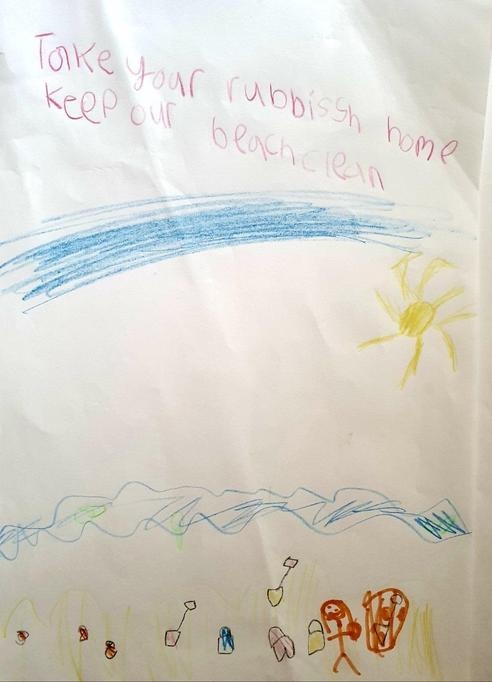 Take your rubbissh home
keep our beach clean